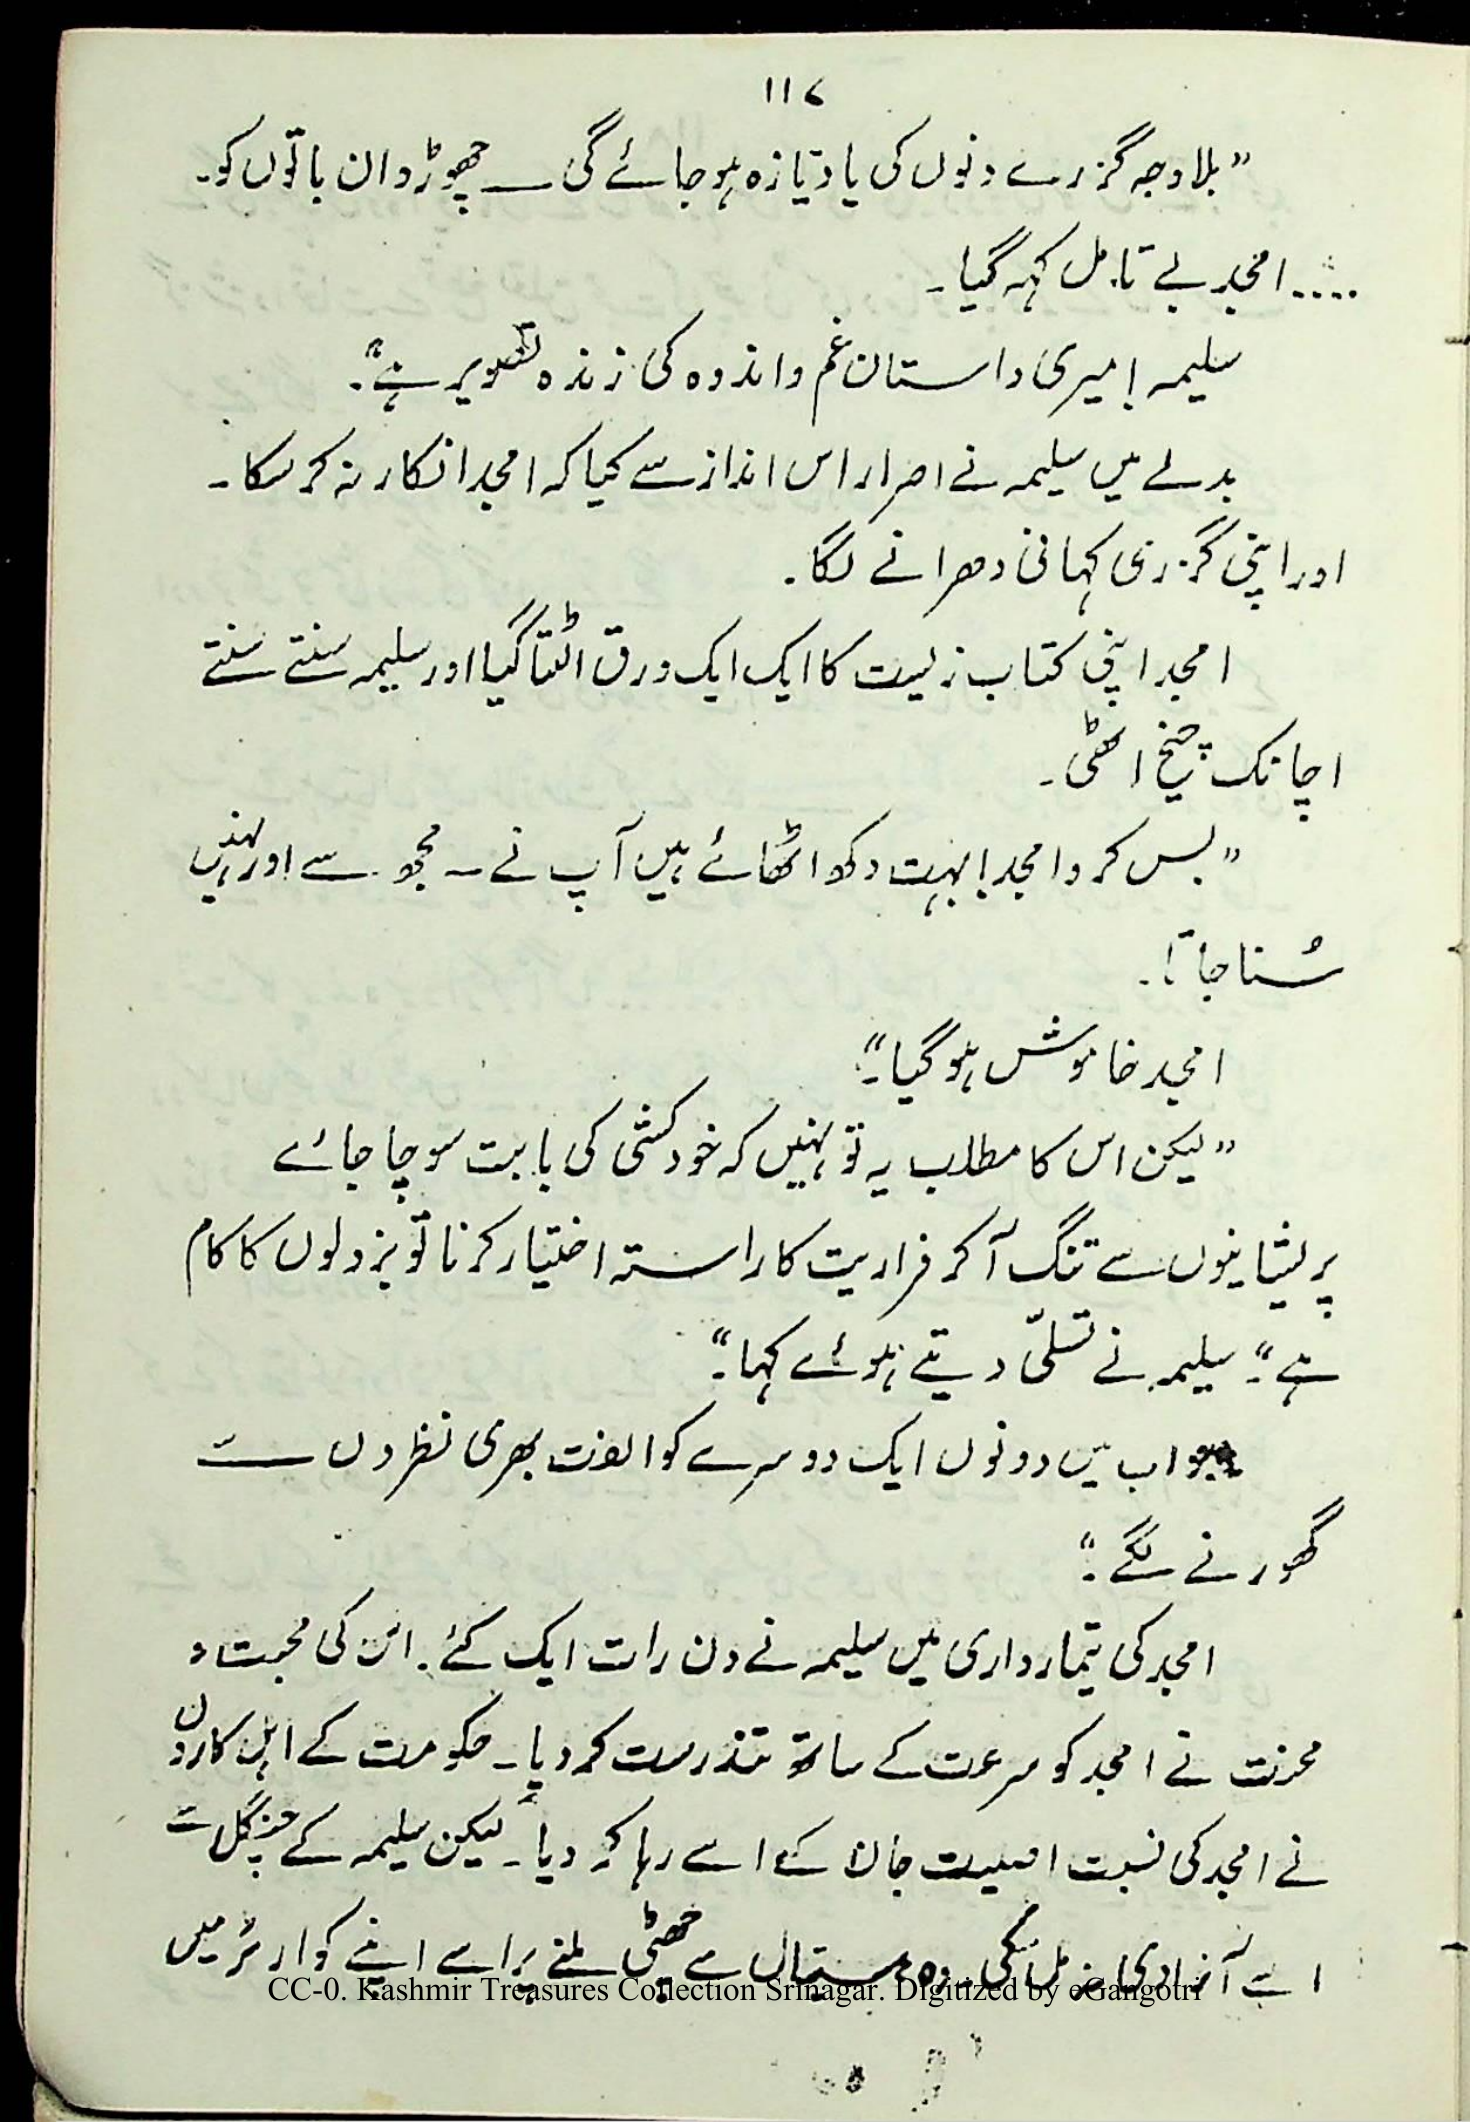 ۱۱۷
”بلا وجہ گزرے دنوں کی یاد تازہ ہو جائے گی — چھوڑو ان باتوں کو۔
.... امجد بے تامل کہہ گیا۔
سلیمہ! میری داستان غم و اندوہ کی زندہ تصویر ہے“۔
بدلے میں سلیمہ نے اصرار اس انداز سے کیا کہ امجد انکار نہ کر سکا۔
اور اپنی گزری کہانی دھرانے لگا۔
امجد اپنی کتاب زیست کا ایک ایک ورق الٹتا گیا اور سلیمہ سنتے سنتے
اچانک چیخ اٹھی۔
”بس کرو امجد! بہت دکھ اٹھائے ہیں آپ نے — مجھ سے اور نہیں
سُنا جاتا۔
امجد خاموش ہو گیا۔“
”لیکن اس کا مطلب یہ تو نہیں کہ خودکشی کی بابت سوچا جائے
پریشانیوں سے تنگ آ کر فراریت کا راستہ اختیار کرنا تو بزدلوں کا کام
ہے“۔ سلیمہ نے تسلّی دیتے ہوئے کہا۔“
جواب میں دونوں ایک دوسرے کو الفت بھری نظروں سے
گھورنے لگے۔“
امجد کی تیمارداری میں سلیمہ نے دن رات ایک کئے۔ اس کی محبت و
محنت نے امجد کو سرعت کے ساتھ تندرست کر دیا۔ حکومت کے اہل کاروں
نے امجد کی نسبت اصلیت جان کے اسے رہا کر دیا۔ لیکن سلیمہ کے چنگل سے
اسے آزادی نہ مل سکی۔ وہ ہسپتال سے چھٹی ملنے پر اسے اپنے کوارٹر میں
CC-0. Kashmir Treasures Collection Srinagar. Digitized by eGangotri